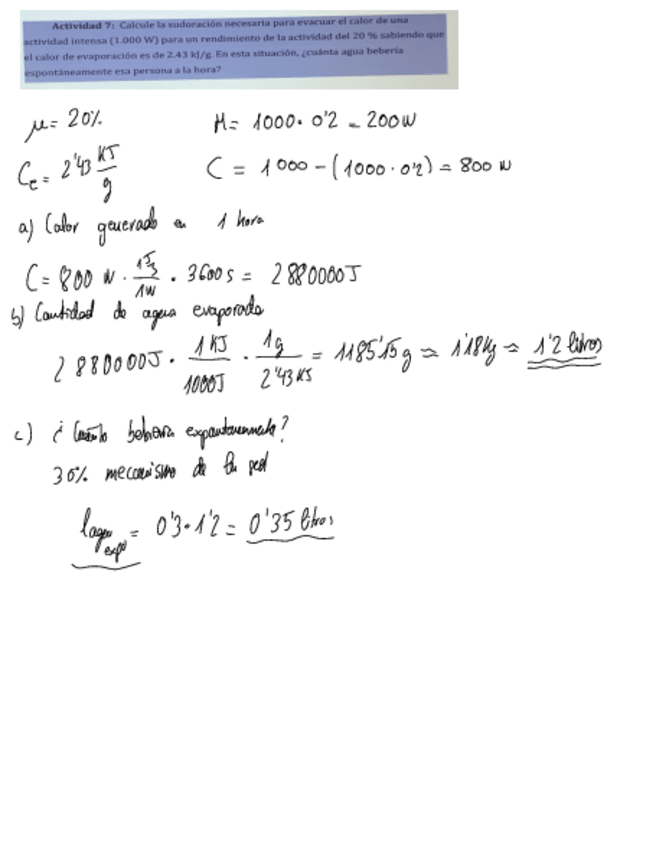 Actividad 7: Calcule la sudoración necesaria para evacuar el calor de una
actividad intensa (1.000 W) para un rendimiento de la actividad del 20 % sabiendo que
el calor de evaporación es de 2.43 kJ/g. En esta situación, ¿cuánta agua bebería
espontáneamente esa persona a la hora?
μ = 20% M = 1000 · 0'2 = 200 W
Ce = 2'43 KJ/g C = 1000 - (1000 · 0'2) = 800 W
a) Calor generado en 1 hora
C = 800 W · 1J/s / 1W · 3600 s = 2880000 J
b) Cantidad de agua evaporada
2880000J · 1 KJ / 1000J · 1g / 2'43 KJ = 1185'15 g ≈ 1'18 Kg ≈ 1'2 litros
c) ¿Cuánto bebería espontáneamente?
30% mecanismo de la sed
lagua expo = 0'3 · 1'2 = 0'35 litros